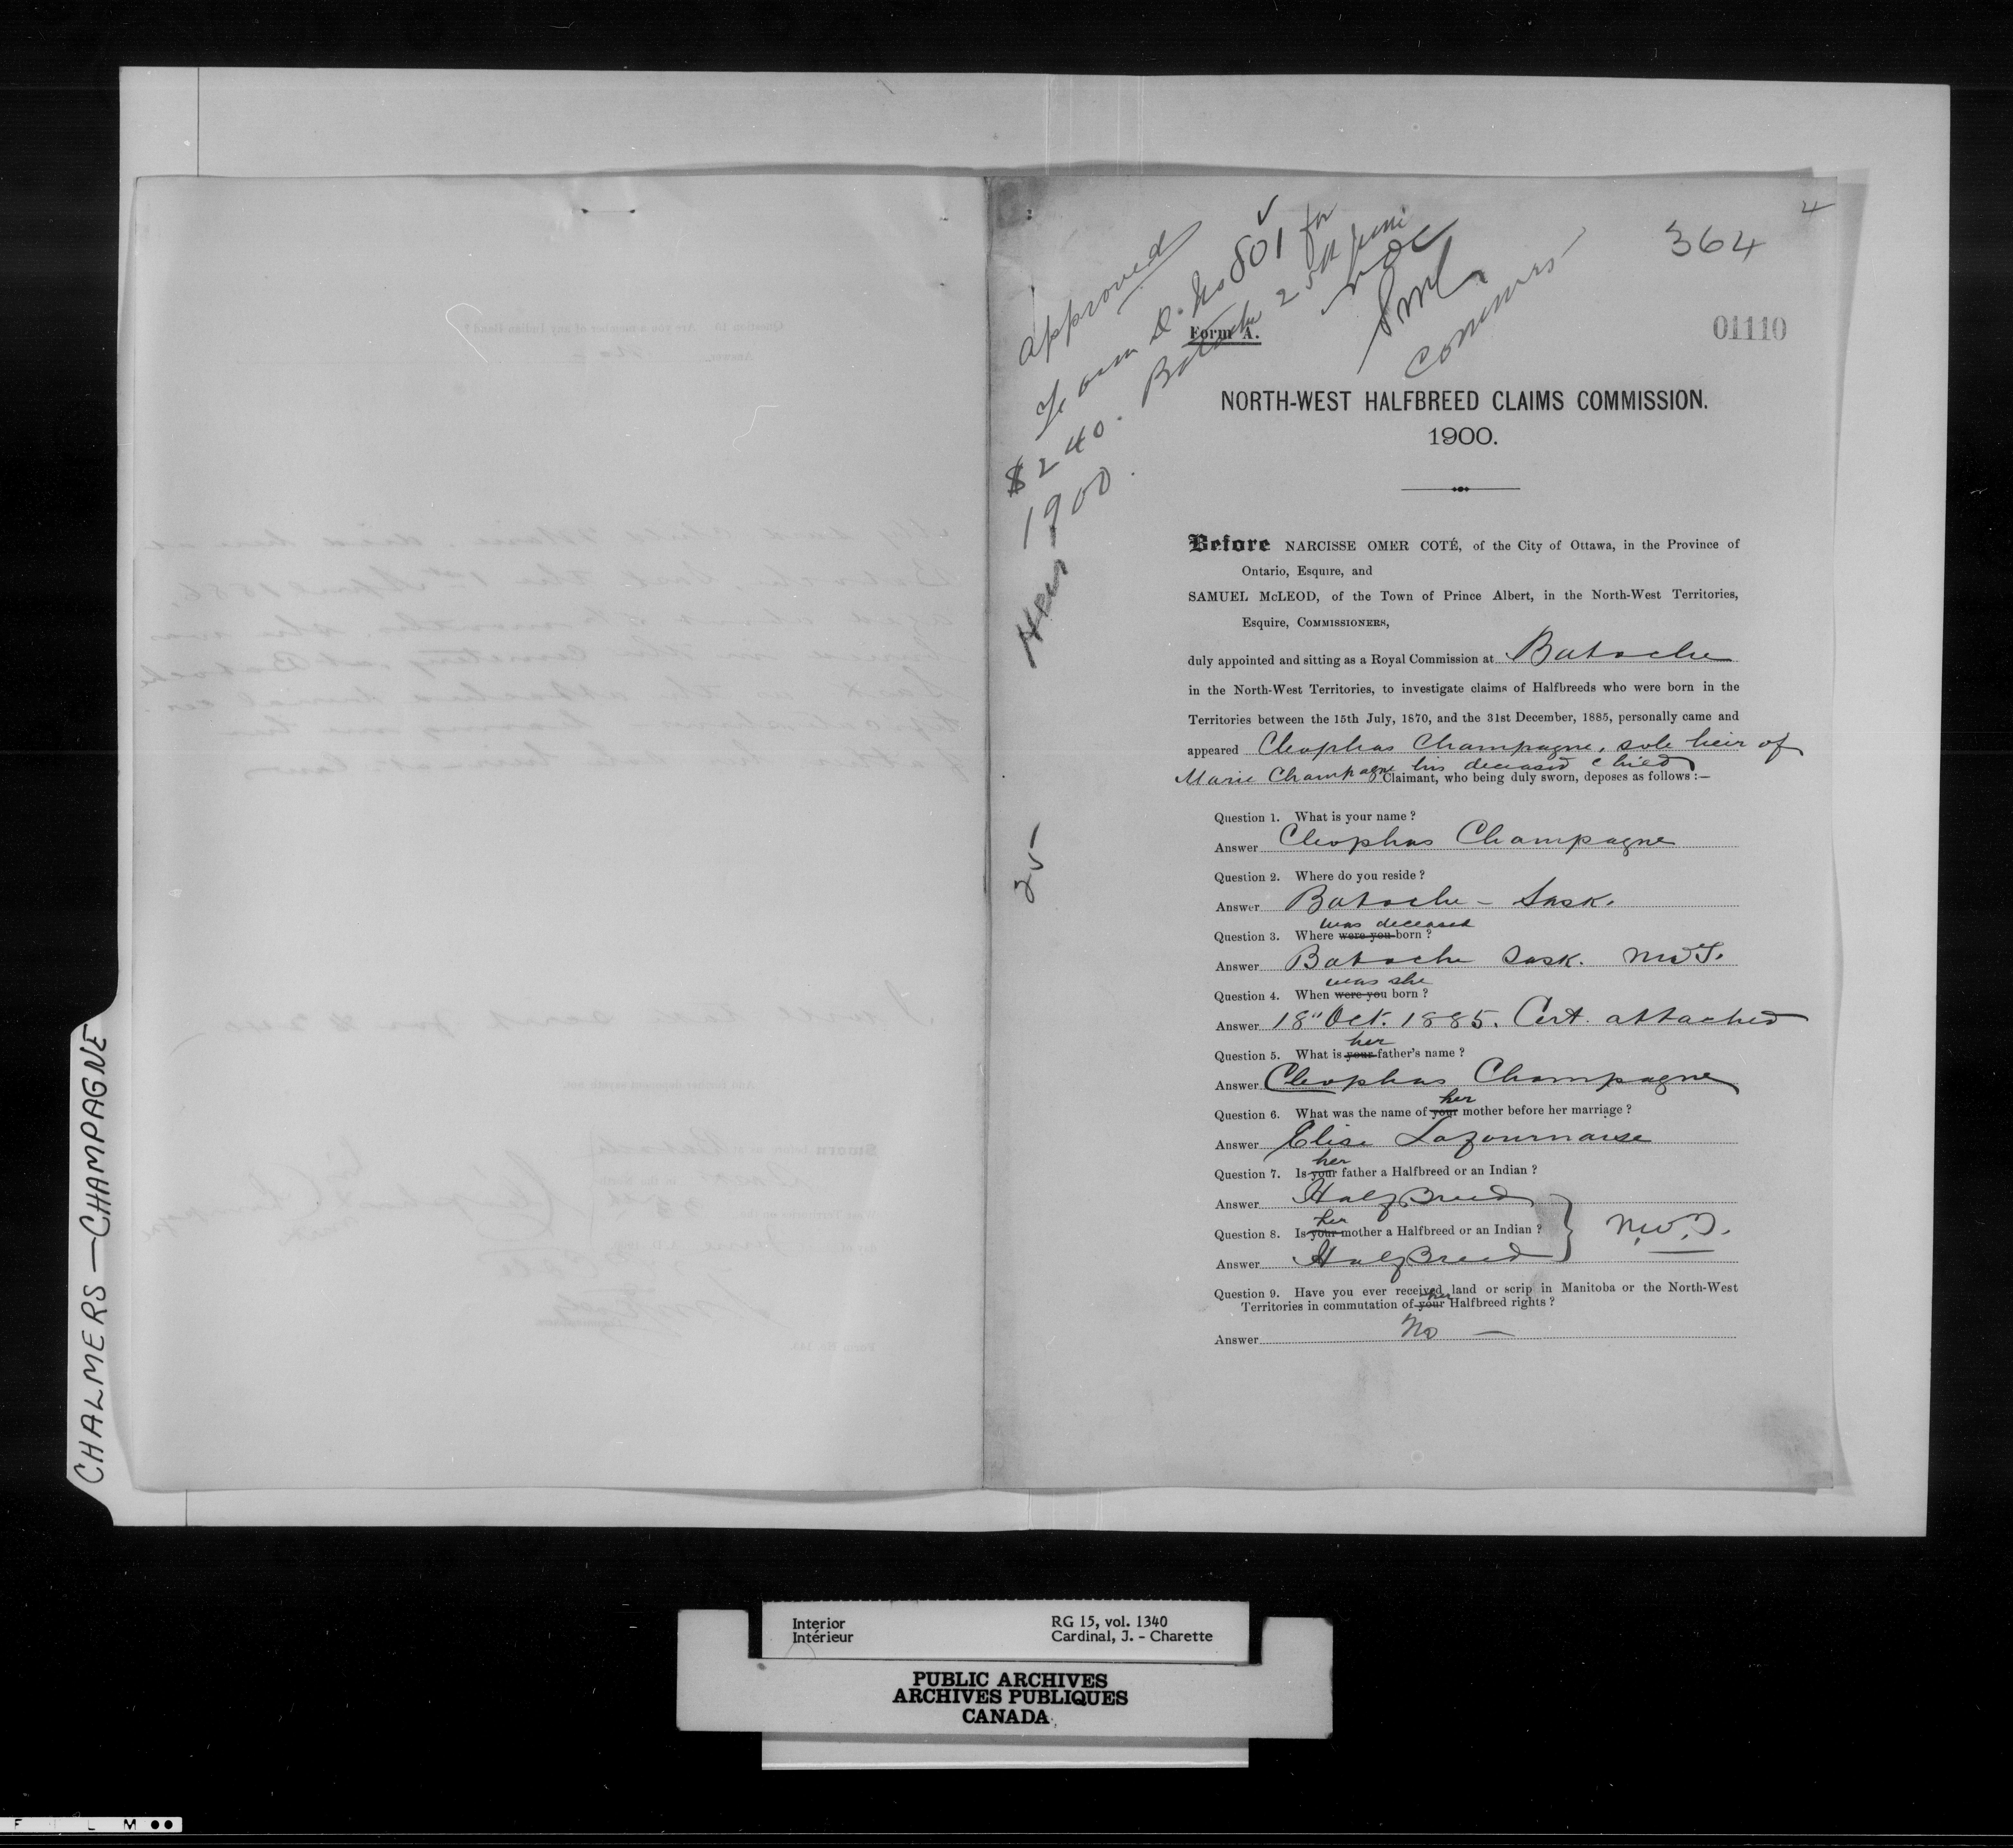 CHALMERS — CHAMPAGNE
4
364
01110
Approved
Form D. No 801 for
$240. Batoche 25th June
1900.
NOC
SMcL
Commrs
Heir
25
Form A.
NORTH-WEST HALFBREED CLAIMS COMMISSION.
1900.
Before NARCISSE OMER COTÉ, of the City of Ottawa, in the Province of
Ontario, Esquire, and
SAMUEL McLEOD, of the Town of Prince Albert, in the North-West Territories,
Esquire, COMMISSIONERS,
duly appointed and sitting as a Royal Commission at Batoche
in the North-West Territories, to investigate claims of Halfbreeds who were born in the
Territories between the 15th July, 1870, and the 31st December, 1885, personally came and
appeared Cleophas Champagne, sole heir of
Marie Champagne his deceased child Claimant, who being duly sworn, deposes as follows :—
Question 1. What is your name ?
Answer Cleophas Champagne
Question 2. Where do you reside ?
Answer Batoche – Sask.
was deceased
Question 3. Where were you born ?
Answer Batoche Sask. NWT.
was she
Question 4. When were you born ?
Answer 18" Oct. 1885. Cert. attached
her
Question 5. What is your father's name ?
Answer Cleophas Champagne
her
Question 6. What was the name of your mother before her marriage ?
Answer Elise Lafournaise
her
Question 7. Is your father a Halfbreed or an Indian ?
Answer HalfBreed
her
Question 8. Is your mother a Halfbreed or an Indian ? } N.W.T.
Answer HalfBreed
Question 9. Have you ever received land or scrip in Manitoba or the North-West
her
Territories in commutation of your Halfbreed rights ?
Answer No —
Interior
Intérieur
RG 15, vol. 1340
Cardinal, J. - Charette
PUBLIC ARCHIVES
ARCHIVES PUBLIQUES
CANADA
F I L M